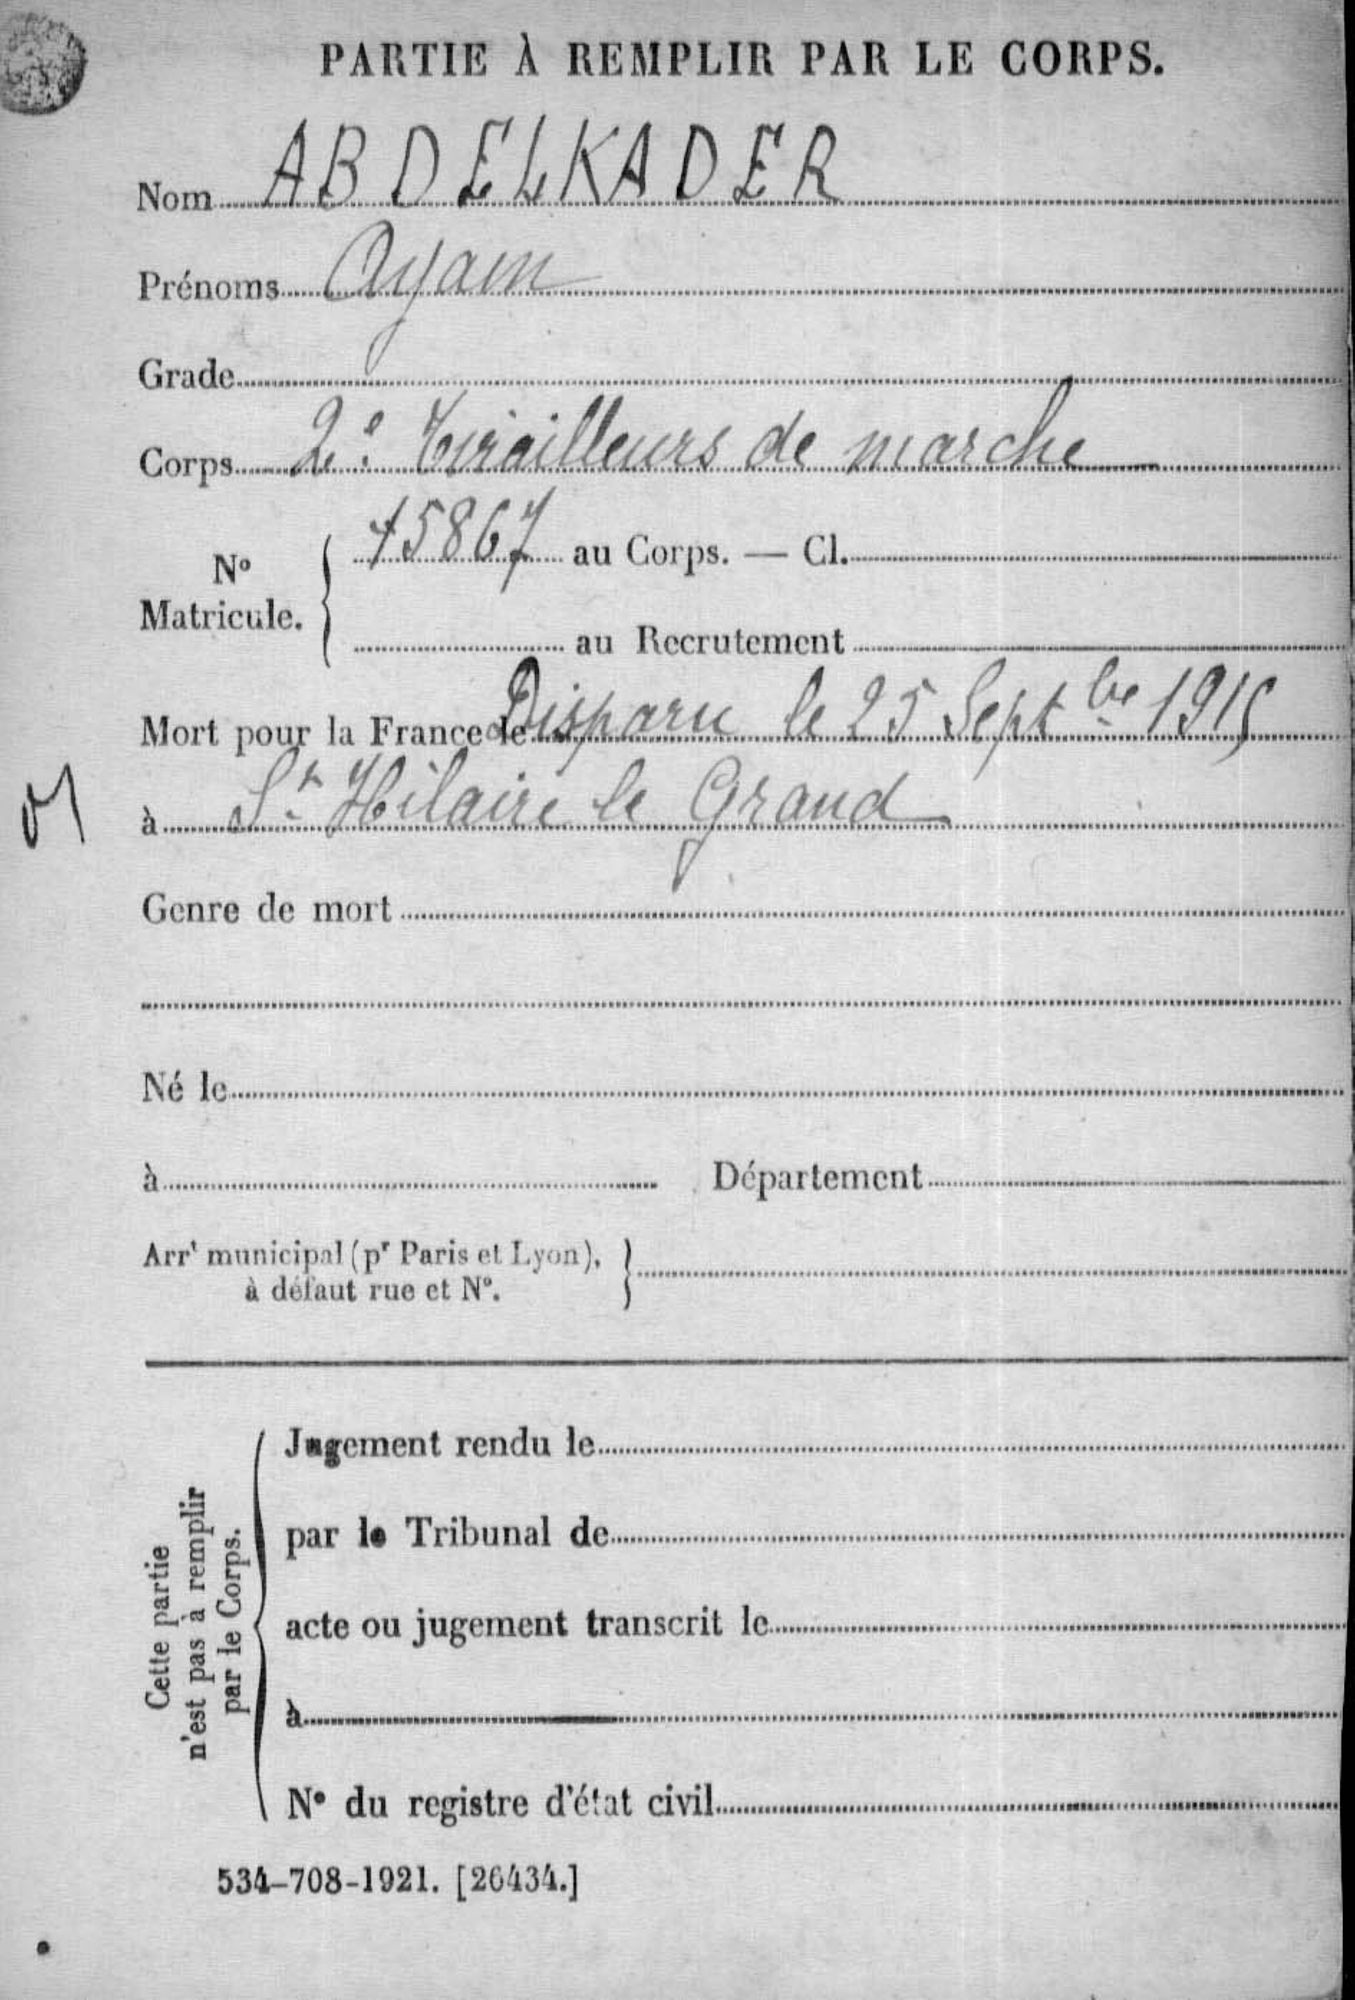 PARTIE À REMPLIR PAR LE CORPS.
Nom ABDELKADER
Prénoms Ayam
Grade
Corps 2e Tirailleurs de marche
No Matricule. { 15867 au Corps. — Cl.
au Recrutement
Mort pour la France le Disparu le 25 Septbre 1915
à St Hilaire le Grand
Genre de mort
Né le
à Département
Arrt municipal (pr Paris et Lyon), }
à défaut rue et No.
Cette partie
n'est pas à remplir
par le Corps.
Jugement rendu le
par le Tribunal de
acte ou jugement transcrit le
à
No du registre d'état civil
534-708-1921. [26434.]